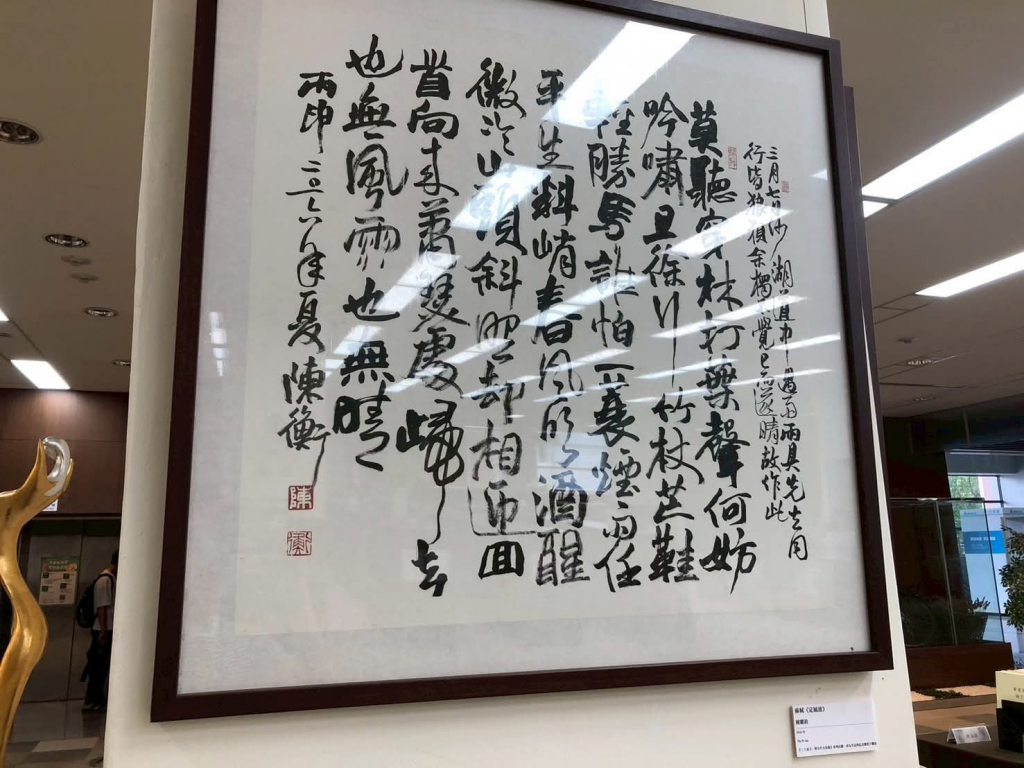 三月七日沙湖道中遇雨雨具先去同
行皆狼狽余獨不覺已而遂晴故作此
莫聽穿林打葉聲何妨
吟嘯且徐行竹杖芒鞋
輕勝馬誰怕一蓑煙雨任
平生料峭春風吹酒醒
微冷山頭斜照却相迎回
首向來蕭瑟處歸去
也無風雨也無晴
丙申二〇一六年夏陳衡
陳
衡
蘇軾《定風波》